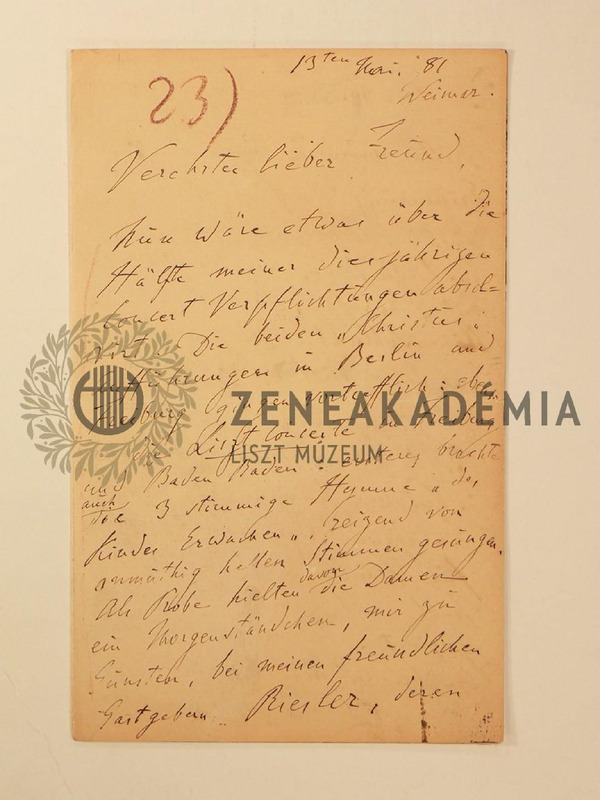 13ten Mai. 81
Weimar.
23)
Verehrter lieber Freund,
Nun wäre etwas über die
Hälfte meiner diesjährigen
Concert Verpflichtungen absol-
virt. Die beiden „Christus“
Aufführungen in Berlin und
Freiburg gingen vortrefflich: eben
die Liszt Concerte in Freiburg
und Baden Baden. brachte
auch
die 3 stimmige Hymne „des
Kindes Erwachen“, reizend von
anmuthig hellen Stimmen gesungen.
davon
Als Probe hielten die Damen
ein Morgenständchen, mir zu
Gunsten, bei meinen freundlichen
Gastgebern Riesler, deren
ZENEAKADÉMIA
LISZT MÚZEUM